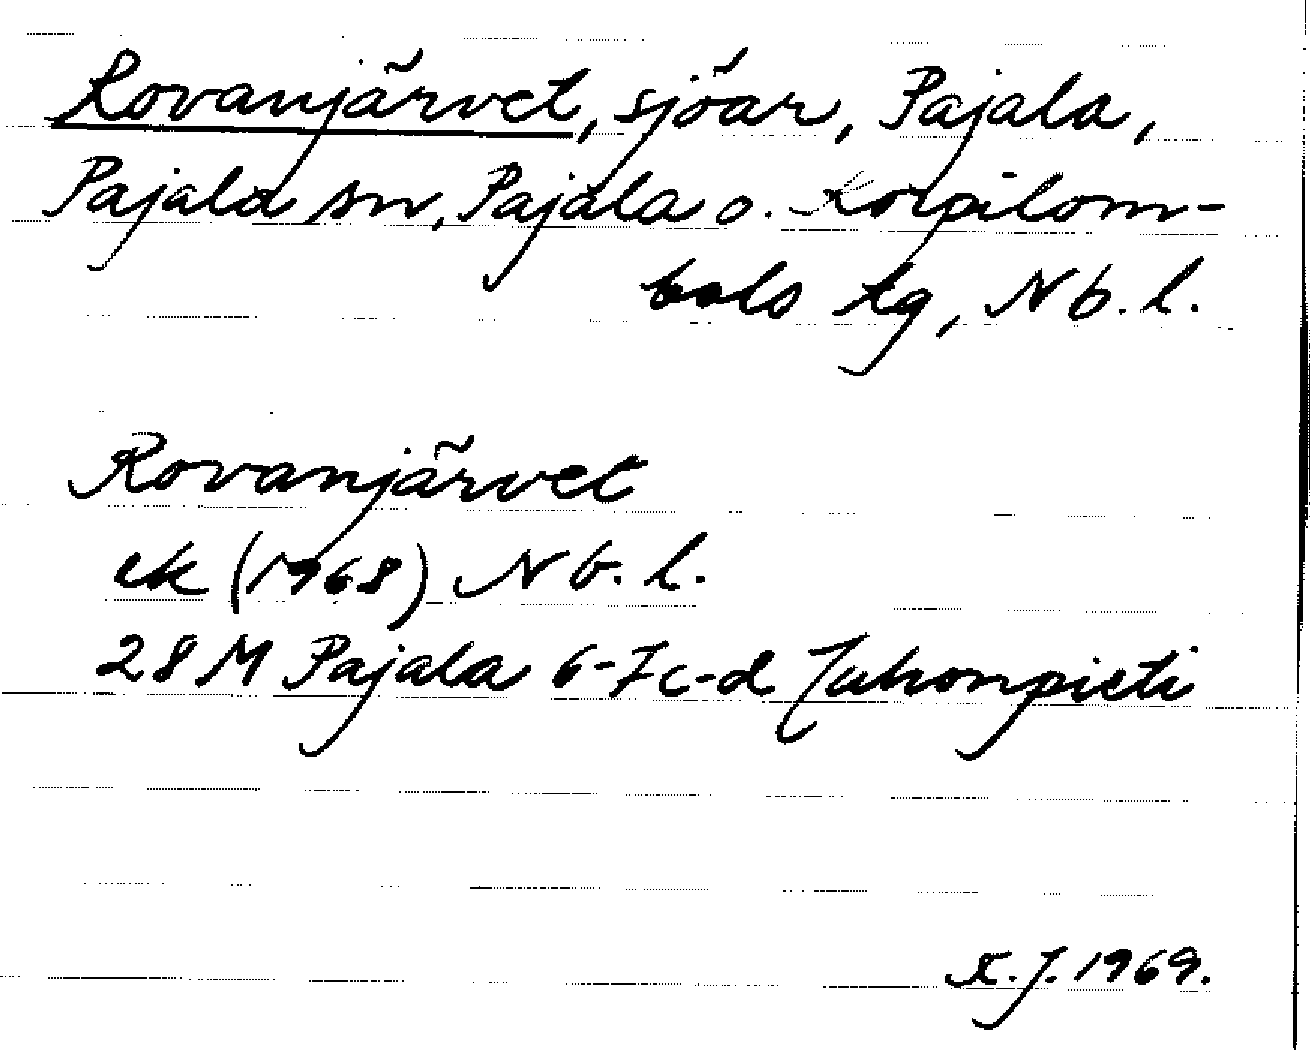 Rovanjärvet, sjöar, Pajala,
Pajala sn, Pajala o. Korpilom-
bolo tg, Nb. l.
Rovanjärvet
ek (1968) Nb. l.
28 M Pajala 6-7c-d Juhonpieti
K.J. 1969.